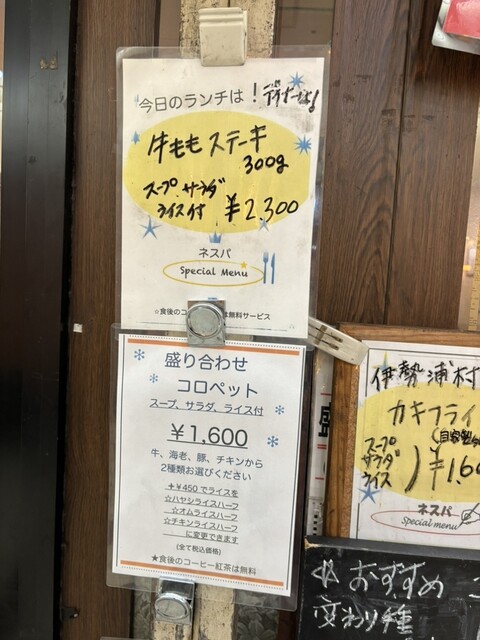 今日のランチは！ディナーは！
牛ももステーキ
300g
スープ、サラダ
ライス付 ¥2,300
ネスパ
Special Menu
☆食後のコーは無料サービス
盛り合わせ
コロペット
スープ、サラダ、ライス付
¥1,600
牛、海老、豚、チキンから
2種類お選びください
+¥450でライスを
☆ハヤシライスハーフ
☆オムライスハーフ
☆チキンライスハーフ
に変更できます
(全て税込価格)
★食後のコーヒー紅茶は無料
伊勢浦村
カキフライ
スープ
サラダ
ライス
¥1,6
ネスパ
Special menu
おすすめ
変わり種